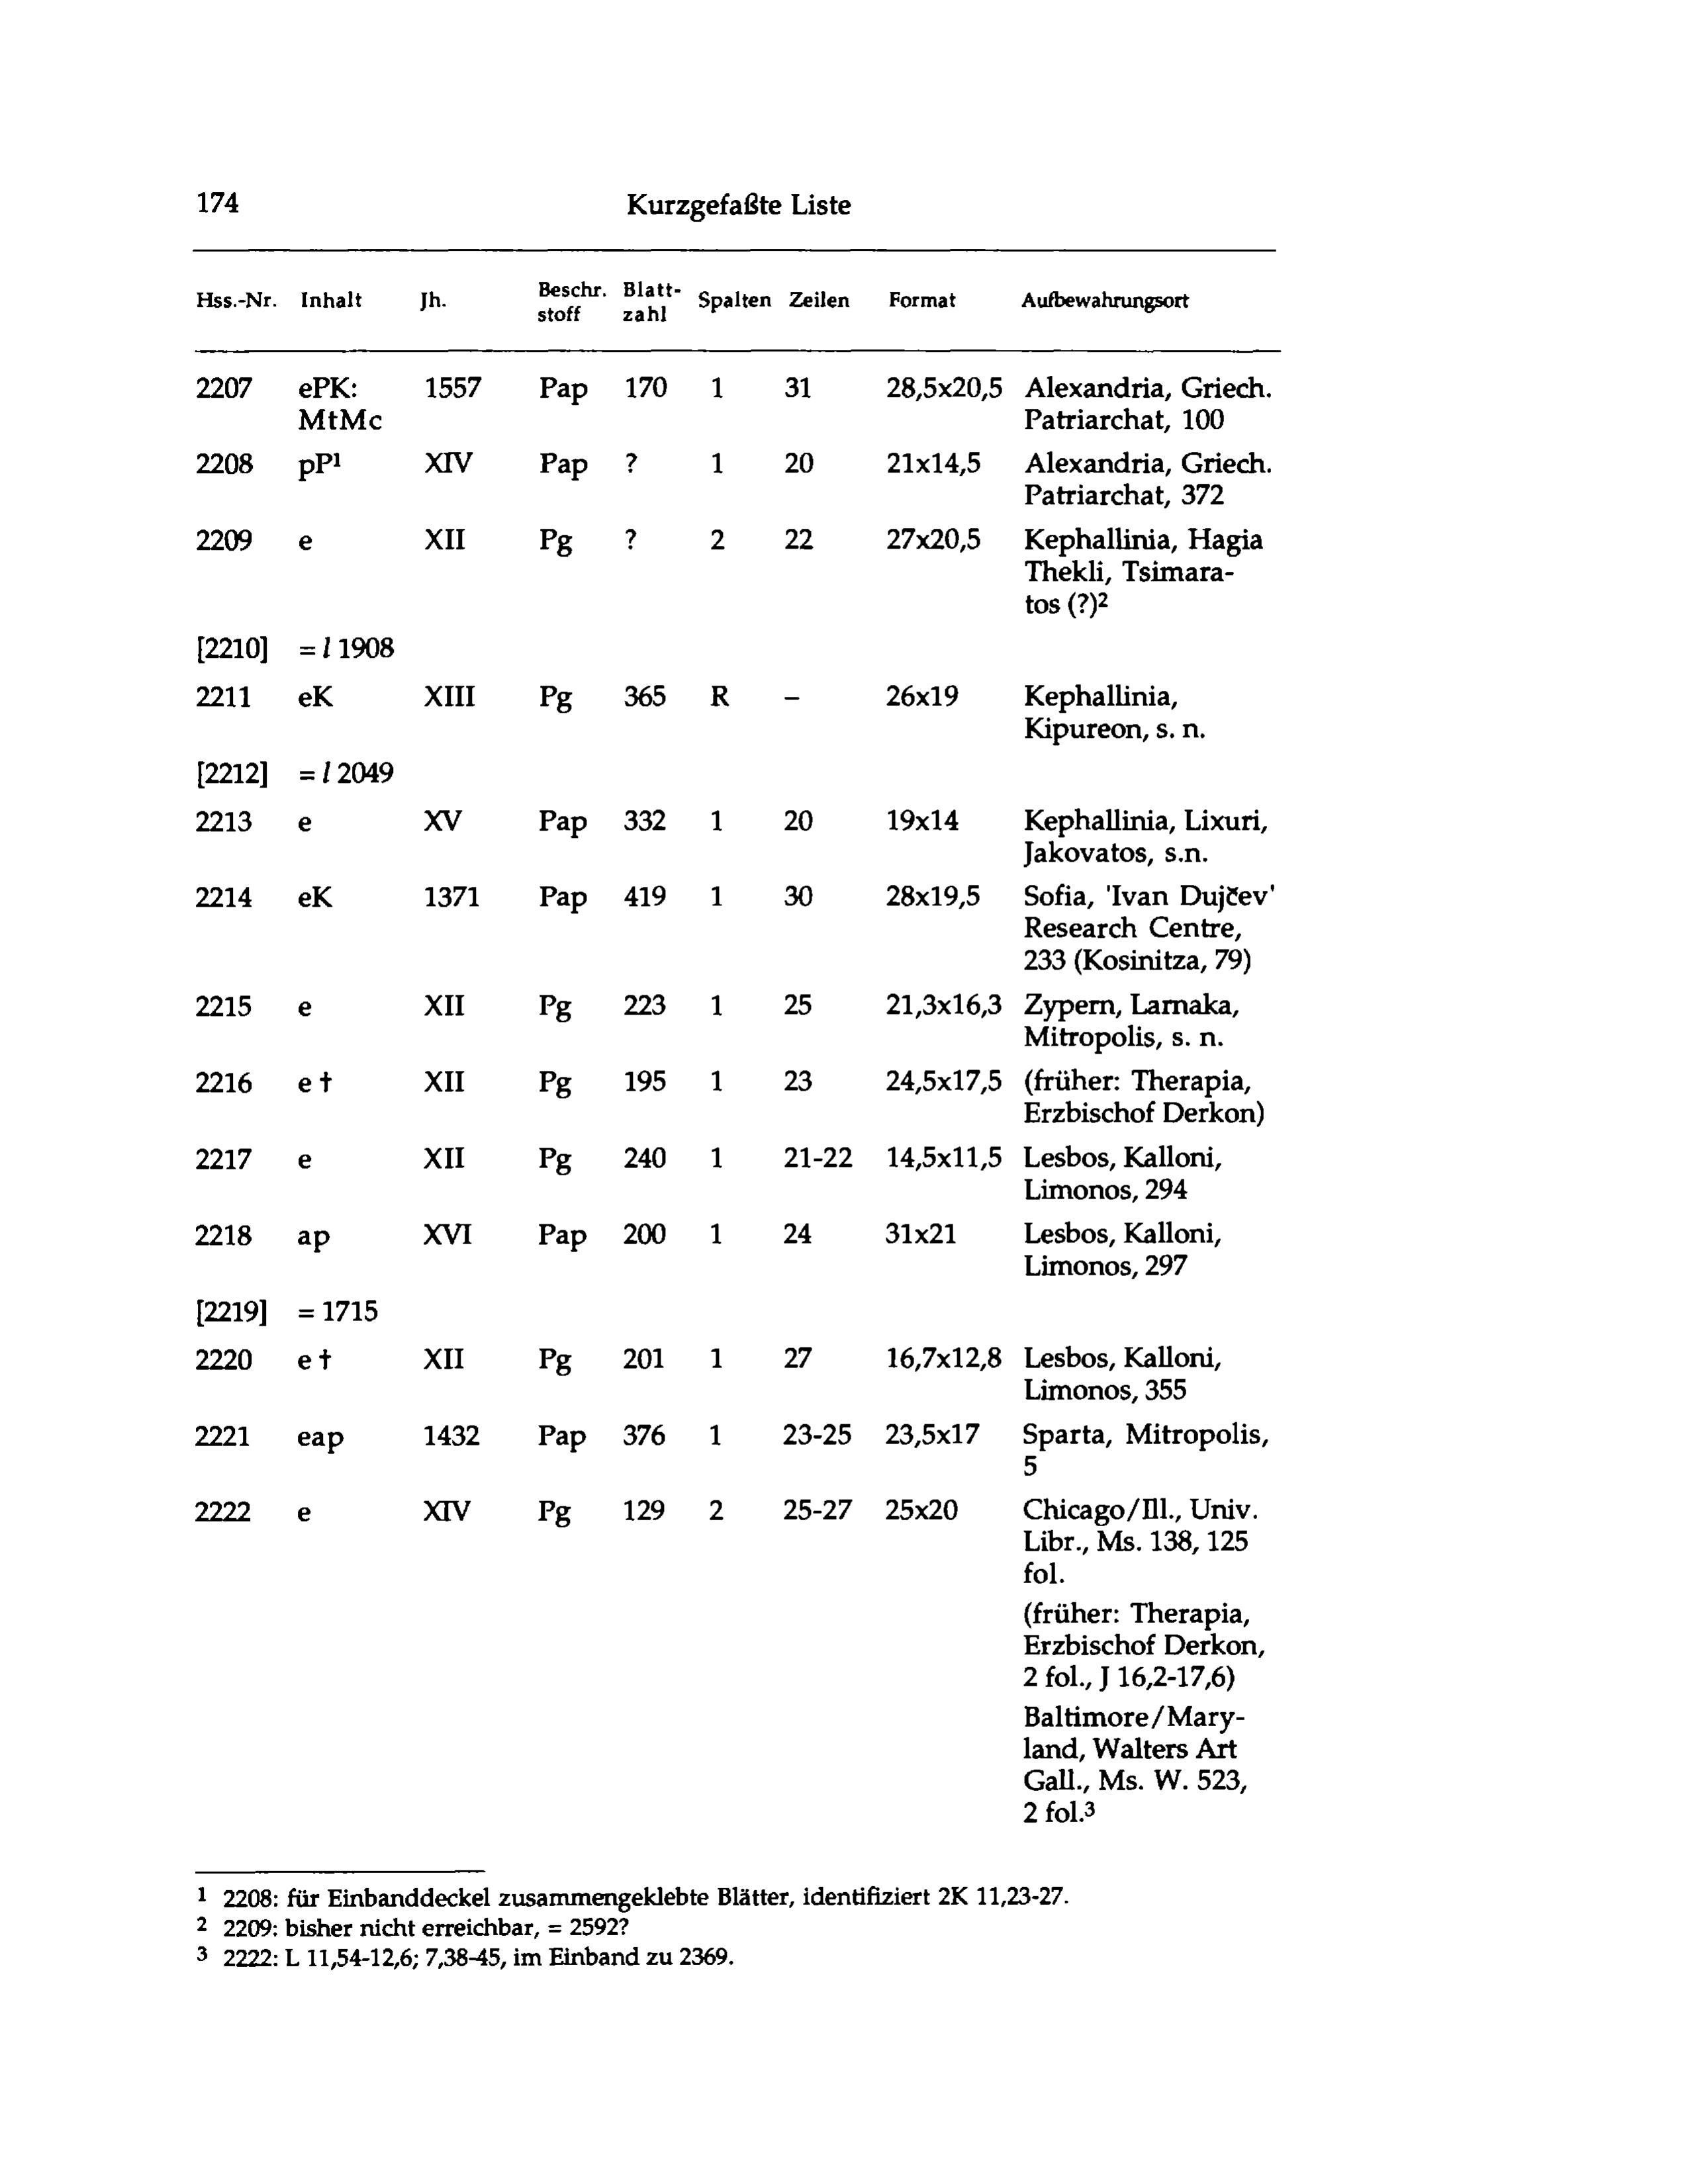 174 Kurzgefaßte Liste
Hss.-Nr. Inhalt Jh. Beschr. stoff Blatt- zahl Spalten Zeilen Format Aufbewahrungsort
2207 ePK: 1557 Pap 170 1 31 28,5x20,5 Alexandria, Griech.
MtMc Patriarchat, 100
2208 pP¹ XIV Pap ? 1 20 21x14,5 Alexandria, Griech.
Patriarchat, 372
2209 e XII Pg ? 2 22 27x20,5 Kephallinia, Hagia
Thekli, Tsimara-
tos (?)²
[2210] = l 1908
2211 eK XIII Pg 365 R – 26x19 Kephallinia,
Kipureon, s. n.
[2212] = l 2049
2213 e XV Pap 332 1 20 19x14 Kephallinia, Lixuri,
Jakovatos, s.n.
2214 eK 1371 Pap 419 1 30 28x19,5 Sofia, 'Ivan Dujčev'
Research Centre,
233 (Kosinitza, 79)
2215 e XII Pg 223 1 25 21,3x16,3 Zypern, Larnaka,
Mitropolis, s. n.
2216 e † XII Pg 195 1 23 24,5x17,5 (früher: Therapia,
Erzbischof Derkon)
2217 e XII Pg 240 1 21-22 14,5x11,5 Lesbos, Kalloni,
Limonos, 294
2218 ap XVI Pap 200 1 24 31x21 Lesbos, Kalloni,
Limonos, 297
[2219] = 1715
2220 e † XII Pg 201 1 27 16,7x12,8 Lesbos, Kalloni,
Limonos, 355
2221 eap 1432 Pap 376 1 23-25 23,5x17 Sparta, Mitropolis,
5
2222 e XIV Pg 129 2 25-27 25x20 Chicago/Ill., Univ.
Libr., Ms. 138, 125
fol.
(früher: Therapia,
Erzbischof Derkon,
2 fol., J 16,2-17,6)
Baltimore/Mary-
land, Walters Art
Gall., Ms. W. 523,
2 fol.³
¹ 2208: für Einbanddeckel zusammengeklebte Blätter, identifiziert 2K 11,23-27.
² 2209: bisher nicht erreichbar, = 2592?
³ 2222: L 11,54-12,6; 7,38-45, im Einband zu 2369.